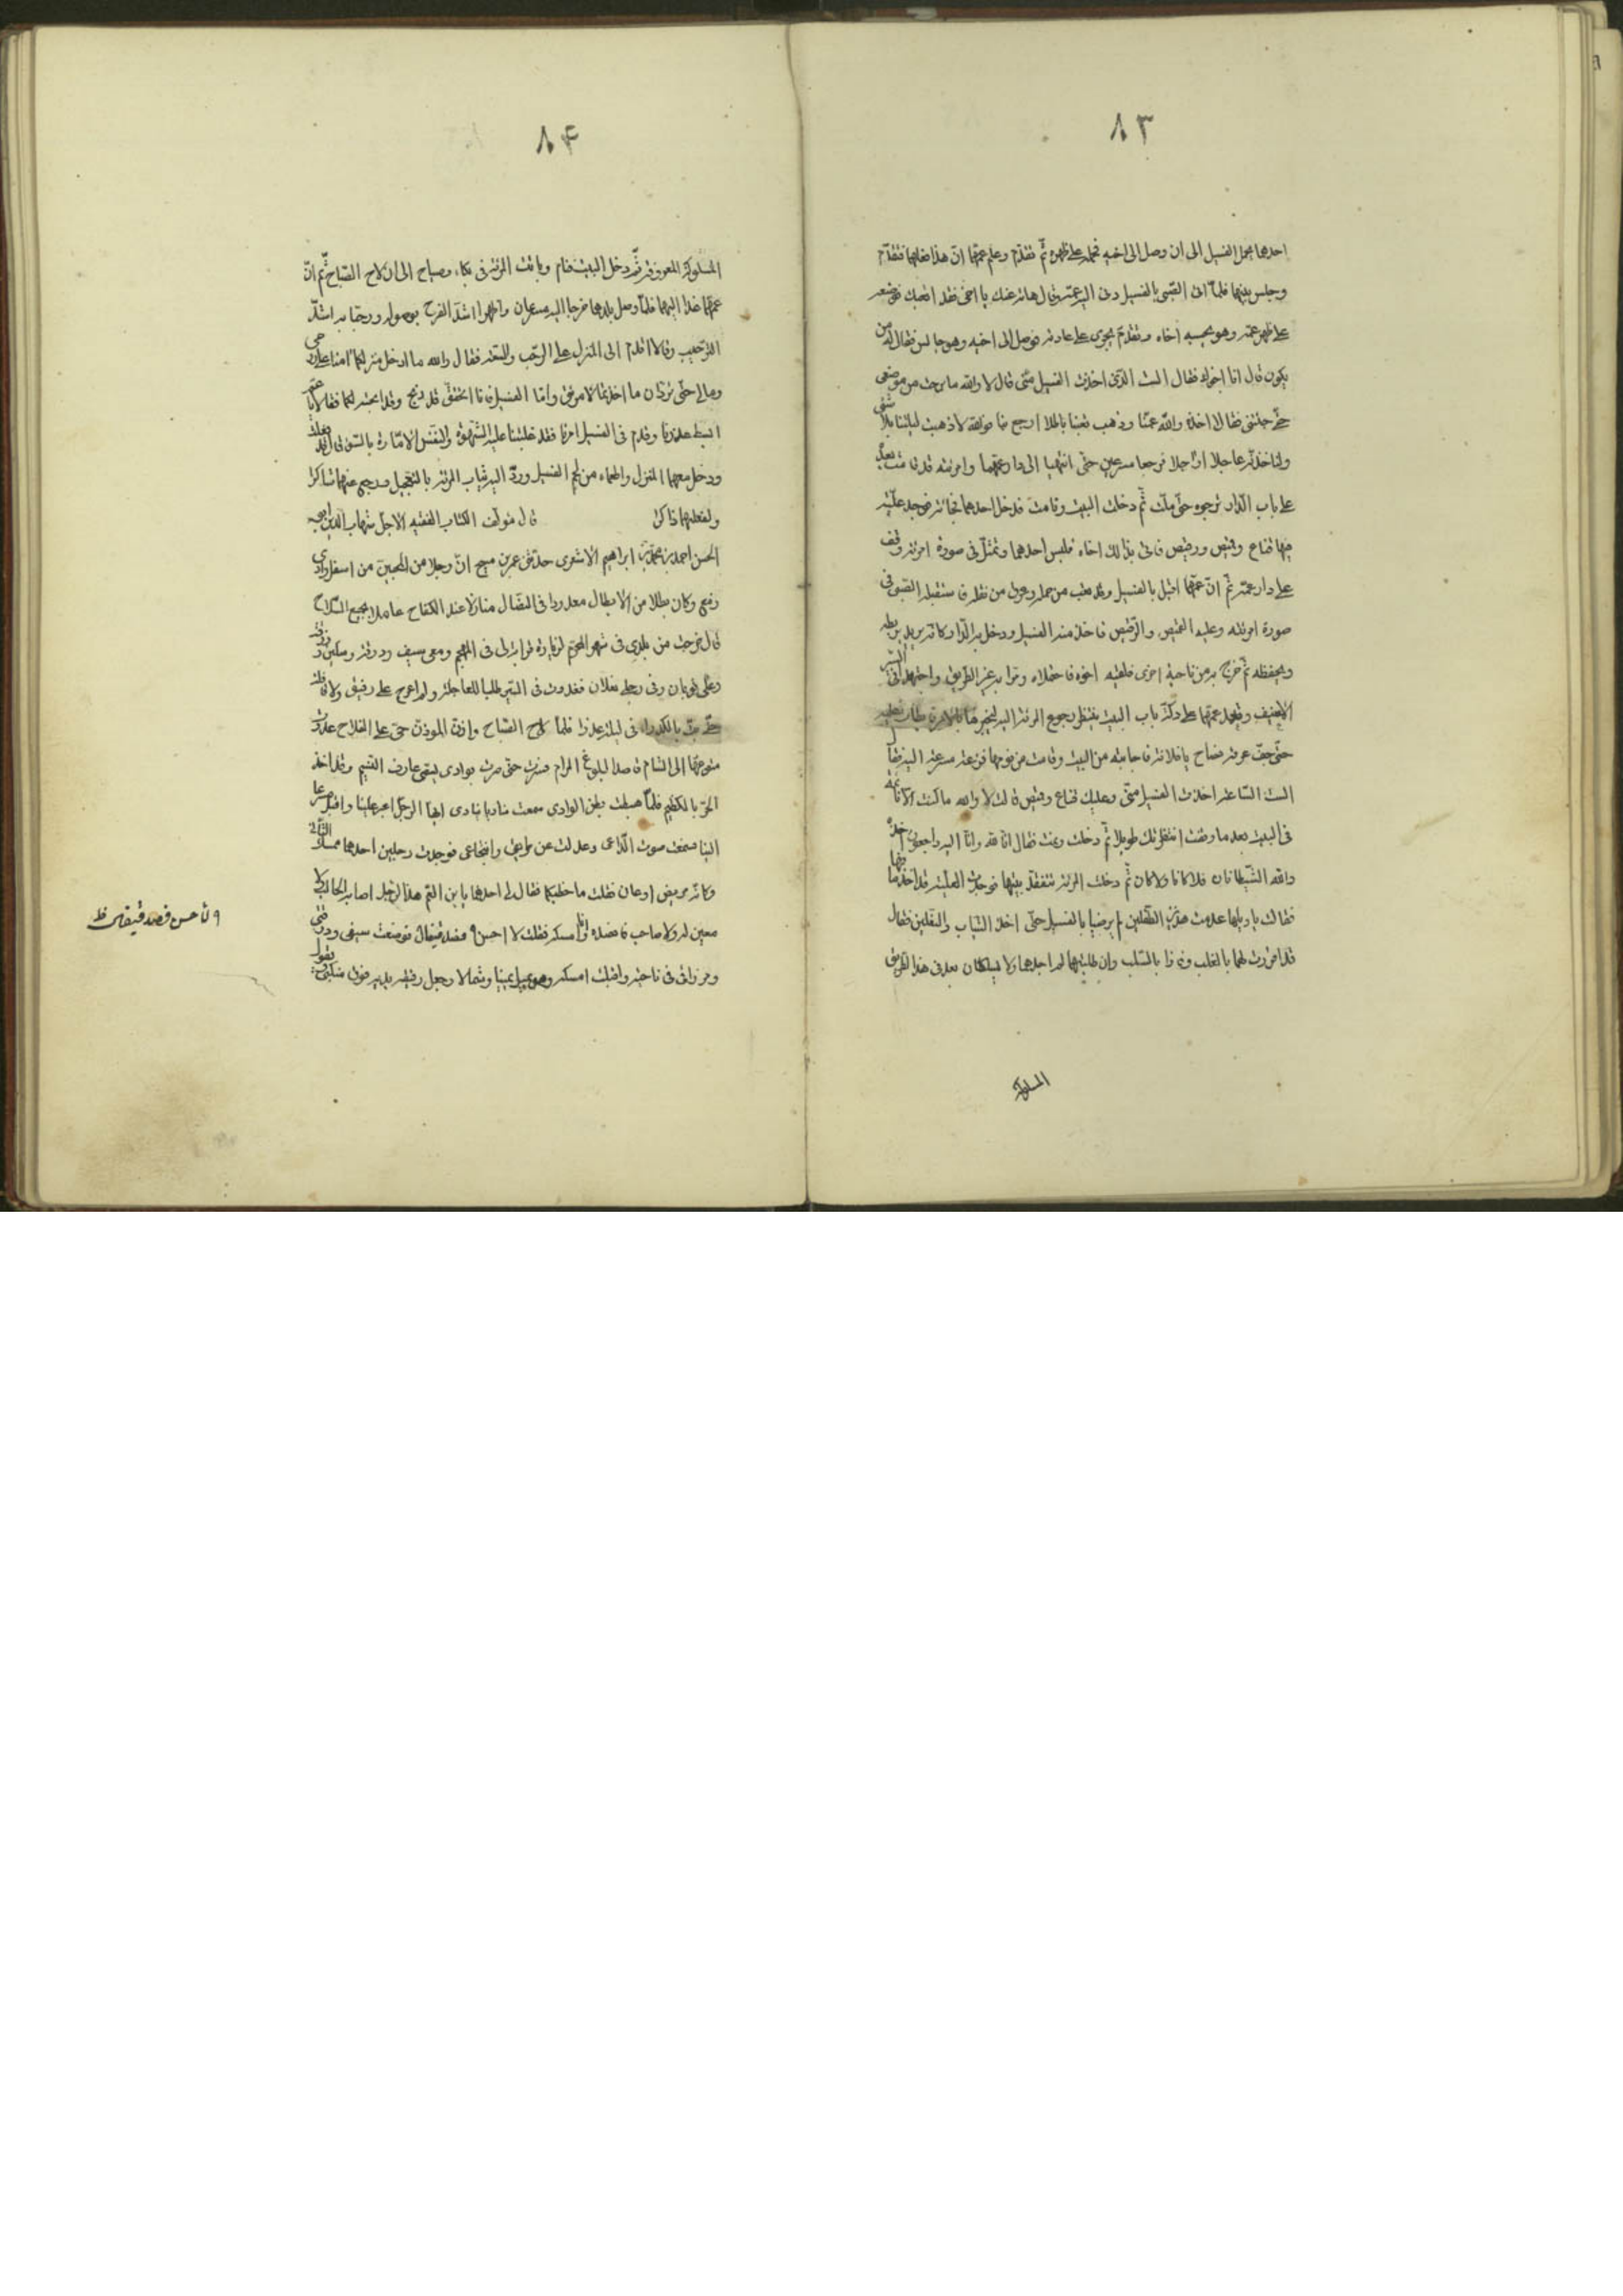 ٨٣
احدهما يحمل الفسيل الى ان وصل الى اخيه فحمله على ظهره ثم تقدّم وعلم عمهما انّ هذا فعلهما فتقدّم
وجلس بينهما فلمّا اتى الصّبى بالفسيل دنى اليه عمّه وقال هاته عنك يا اخى فقد اتعبك فوضعه
على ظهر عمّه وهو يحسبه اخاه وتقدّم يجرى على عادته فوصل الى اخيه وهو جالس فقال له من
يكون قال انا اخوك فقال الست الذى اخذت الفسيل منّى قال لا والله ما برحت من موضعى
حتى جئتنى فقال اخذه والله عمّنا وذهب تعبنا باطلا ارجع بنا فوالله لا ذهبت ليلتنا بلا شئ
ولناخذنّه عاجلا او آجلا فرجعا مسرعين حتّى انتهيا الى دار عمّهما وامرئته قد قامت بعده
على باب الدّار ترجوه حتّى ملّت ثمّ دخلت البيت ونامت فدخل احدهما فجائة فوجد علّيّة
فيها قناع وقميص ورخيص فاتى بذلك اخاه فلبس احدهما وتمثّل فى صورة امرئته ووقف
على دار عمّه ثمّ انّ عمّهما اقبل بالفسيل وقد تعب من حمله وعرق من نقله فاستقبله الصّبى فى
صورة امرئته وعليه القميص والرّخيص فاخذ منه الفسيل ودخل به الدّار وكانّه يريد يربطه
ويحفظه ثم خرج به من ناحية اخرى فلقيه اخوه فاحتملاه ومرّا به غير الطّريق واجتهدا فى السّير
العنيف وقعد عمّهما على دكّة باب البيت ينتظر رجوع المرئة اليه ليخبرها بالامر فطال تعليه
حتّى جفّ عرقه فصاح يا فلانة فاجابته من البيت وقامت من نومها فزعة مسرعة اليه فقال
الست السّاعة اخذت الفسيل منّى وعليك قناع وقميص قالت لا والله ما كنت الّا نائمة
فى البيت بعد ما وقفت انتظرتك طويلا ثمّ دخلت ونمت فقال انّا لله وانّا اليه راجعون اخذه
والله الشّيطانان فلا كانا ولا كان ثمّ دخلت المرئة تتفقّد بيتها فوجدت العلّيّة قد اخذ ما فيها
فقالت يا ويلها عدمت هذين الطّفلين لم يرضيا بالفسيل حتّى اخذا الثياب والنّعلين فقال
قد اقررت لهما بالغلب وفازا بالسّلب وان طلبتهما لم اجدهما ولا يسلكان بعد فى هذا الطريق
المسلوكة
٨٤
المسلوكة المعروفة ثمّ دخل البيت فنام وباتت المرئة فى بكاء وصياح الى ان لاح الصّباح ثمّ انّ
عمّهما غدا اليهما فلمّا وصل بلدهما خرجا اليه مسرعان واظهرا اشدّ الفرح بوصوله ورحّبا به اشدّ
التّرحيب وقالا اقدم الى المنزل على الرّحب والسّعة فقال والله ما ادخل منزلكما امنا على روحى
ومالى حتّى تردّان ما اخذتما لامرئتى وامّا الفسيل فانا اتحقّق قد ذبح وقد ابحته لكما فقالا يا عمّ
ابسط عذرنا وقدم فى الفسيل امرنا فقد غلبتنا عليه الشّهوة والنّفس الامّارة بالسّوء
ودخل معهما المنزل واطعماه من لحم الفسيل وردّ اليه ثياب المرئة بالتّعجيل ورجع عنهما شاكرا
ولفعلهما ذاكرا قال مؤلّف الكتاب الفقيه الاجلّ شهاب الدّين ابو
الحسن احمد بن محمّد بن ابراهيم الاشعرى حدّثنى عمر بن مسيح انّ رجلا من المحبين من اسفل وادى
رفع وكان بطلا من الابطال معدودا فى النضال منازلا عند الكفاح عاملا بجميع السّلاح
قال خرجت من بلدى فى شهر المحرّم لزيارة قرابة لى فى المهجم ومعى سيف ودرقة وسكين
وعلى ثوبان وفى رجلى نعلان فغدوت فى السّير طلبا للعاجلة ولم اعرج على رفيق ولا قافلة
حتّى بتّ بالكدراء فى ليلة عذرا فلمّا لاح الصّباح واذّن المؤذّن حىّ على الفلاح غدوت
متوجّها الى الشام قاصدا لبلوغ المرام فسرت حتّى صرت بوادى يسقى عارف النّسيم وقد اخذ
الحرّ بالكظيم فلمّا هبطت بطن الوادى سمعت مناديا ينادى ايّها الرّجل اعبر علينا واقبل مسرعا
الينا فسمعت صوت الدّاعى وعدلت عن طريقى وانتجاعى فوجدت رجلين احدهما ممسك الثّانى
وكانّه مريض او عان فقلت ما خطبكما فقال لى احدهما يا بن العمّ هذا الرّجل اصابه الحال ولا
معين له ولا صاحب فافصده وانا امسكه فقلت لا احسن فصد قيفال فوضعت سيفى ودرقتى
ومزراقى فى ناحية واقبلت امسكه وهو يميل يمينا وشمالا وجعل رفيقه يديه فوق منكبى يقول